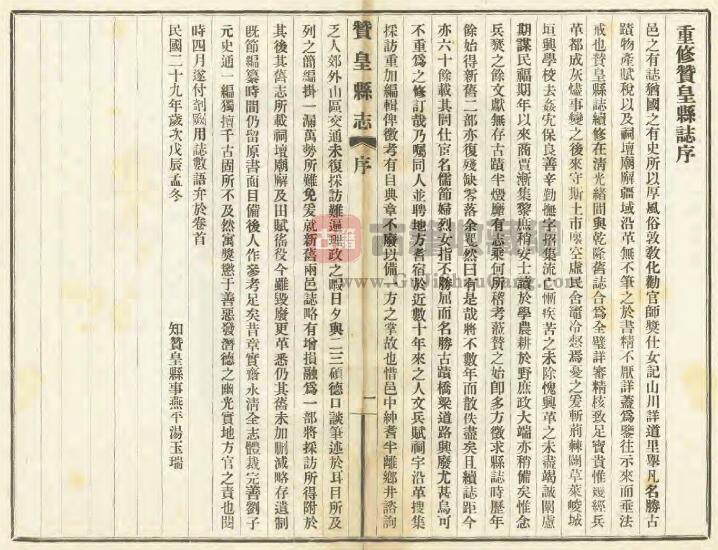 重修贊皇縣誌序
邑之有誌猶國之有史所以厚風俗敦敎化勸官師獎仕女記山川詳道里舉凡名勝古
蹟物產賦稅以及祠壇廟廨疆域沿革無不筆之於書精不厭詳蓋爲鑒往示來而垂法
戒也贊皇縣誌續修在清光緒間與乾隆舊誌合爲全璧詳審精核致足寶貴惟嫚經兵
革都成灰燼事變之後來守斯土市廛空虛民舍竈冷惄焉憂之爰斬荊棘闢草萊峻城
垣興學校去姦宄保良善辛勤撫字招集流亡慚疾苦之未除愧興革之未盡竭誠闡慮
期謀民福期年以來商賈漸集黎庶稍安士讀於學農耕於野庶政大端亦稍備矣惟念
兵燹之餘文獻無存古蹟半燬廳有志乘何所稽考蒞贊之始卽多方徵求縣誌時歷年
餘始得新舊二部亦復殘缺零落余戛然曰有是哉將不數年而散佚盡矣且續誌距今
亦六十餘載其間仕宦名儒節婦烈女指不勝屈而名勝古蹟橋梁道路興廢尤甚烏可
不重爲之修訂哉乃囑同人並聘地方耆宿於近數十年來之人文兵賦祠宇沿革搜集
採訪重加編輯俾徵考有自典章不廢以備一方之掌故也惜邑中紳耆半離鄉井諮詢
贊皇縣志 序 一
乏人郊外山區交通未復採訪難逼理政之暇日夕與二三碩德口談筆述於耳目所及
列之簡編掛一漏萬勢所難免爰就新舊兩邑誌略有增損融爲一部將採訪所得附於
其後其舊志所載祠壇廟廨及田賦徭役今雖毀廢更革悉仍其舊未加刪減略存遺制
旣節編纂時間仍留原書面目備後人作參考足矣昔章實齋永清全志體裁完善劉子
元史通一編獨擅千古固所不及然寓獎懲于善惡發潛德之幽光實地方官之責也閱
時四月遂付剞劂用誌數語弁於卷首
知贊皇縣事燕平湯玉瑞
民國二十九年歲次戊辰孟冬
古籍收藏網
古籍
www.Gujishoucang.com